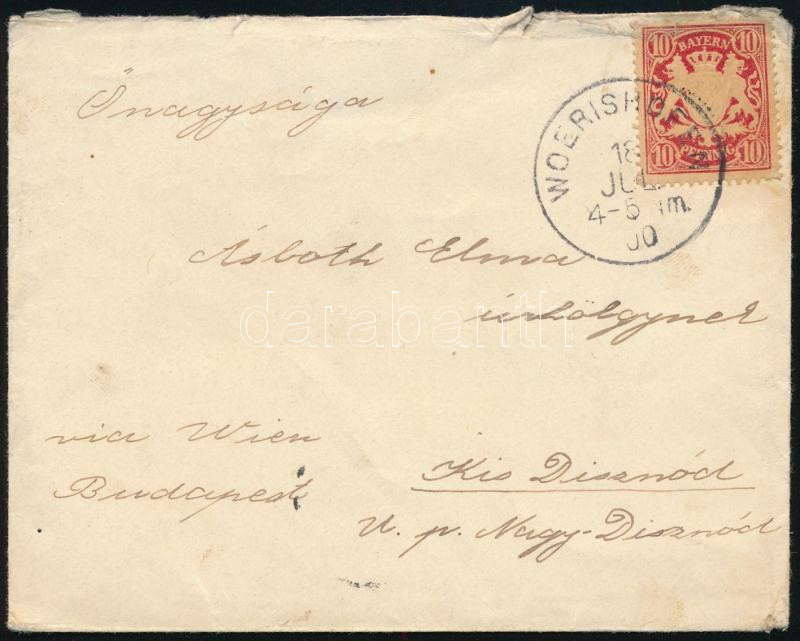 10 BAYERN 10
10 PFENNIG 10
WOERISHOFEN
18
JUL.
4-5 Nm.
00
Önagysága
Ásboth Elma
úrhölgynek
darabanth
via Wien
Budapest
Kis Disznód
U. p. Nagy-Disznód